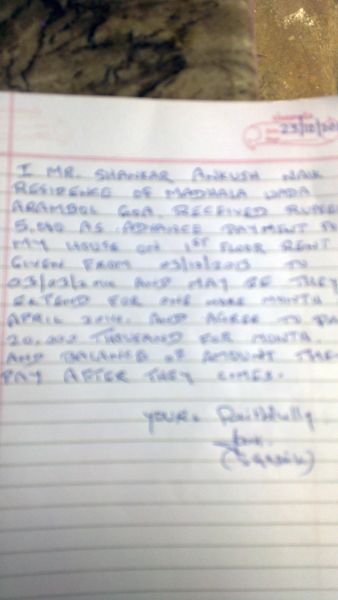 23/10/20
I MR. SHANKAR ANKUSH NAIK
RESIDENCE OF MADHALA WADA
ARAMBOL GOA. RECEIVED RUPEE
5,000 AS ADVANCE PAYMENT FO
MY HOUSE ON 1ST FLOOR RENT
GIVEN FROM 03/10/2013 TO
03/03/2014 AND MAY BE THEY
EXTEND FOR ONE MORE MONTH
APRIL 2014. AND AGREE TO PA
20,000 THOUSAND FOR MONTH.
AND BALANCE OF AMOUNT THEY
PAY AFTER THEY COMES.
YOUR. Faithfully